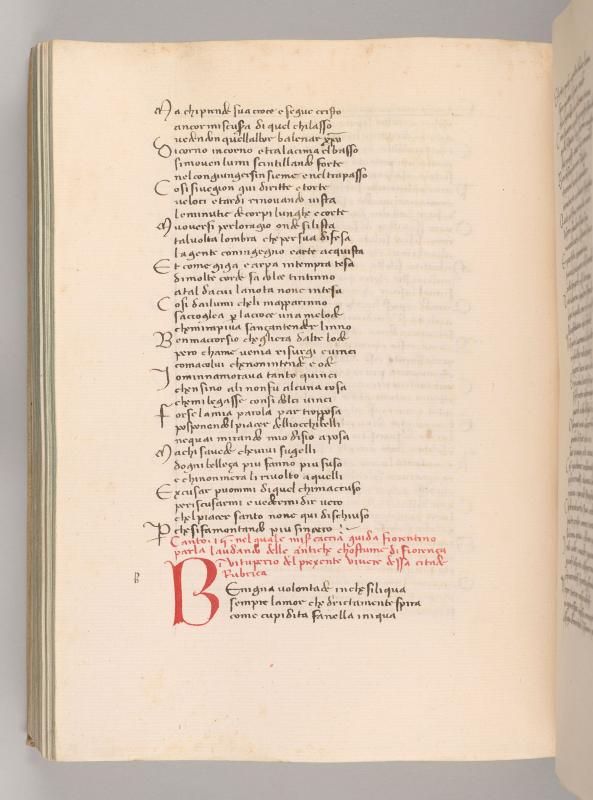 Ma chiprende sua croce e segue cristo
ancor miscusa di quel chilasso
vedendon quellalbor balenar xpo
Dicorno incorno etralacima elbasso
simoven lumi scintillando forte
nel congiungersinsieme enel trapasso
Cosi siveggion qui diritte e torte
veloci etardi rinovando vista
leminutie de corpi lunghe e corte
Moversi perloragio onde silista
talvolta lombra che per sua difesa
lagente coningegno earte acquista
Et come giga e arpa intempra tesa
dimolte corde fa dolce tintinno
atal dacui lanota none intesa
Cosi dailumi cheli mapparinno
saccoglea p lacroce una melode
chemirapiva sancantender linno
Ben maccorsio chegliera dalte lode
pero chame venia risurgi e vinci
comacolui chenonintende e ode
Io minnamorava tanto quinci
chensino ali non fu alcuna cosa
chemilegasse consi dolci vinci
Forse lamia parola par troppo sa
posponendol piacer delliocchi belli
nequai mirando mio disio a posa
Machi savede chevivi sugelli
dogni belleza piu fanno piu suso
e chinonmera li rivolto aquelli
Excusar puommi di quel chimaccuso
periscusarmi e vedermi dir vero
chelpiacer santo none qui dischiuso
Pchesifamontando piu sincero
Canto. 15. nel quale mis cacciaguida fiorentino
parla laudando delle antiche chostume di fiorenza
in vituperio del presente vivere dessa citade
Rubrica
b
Benigna volontade inche siliqua
sempre lamor che drictamente spira
come cupidita fanella iniqua